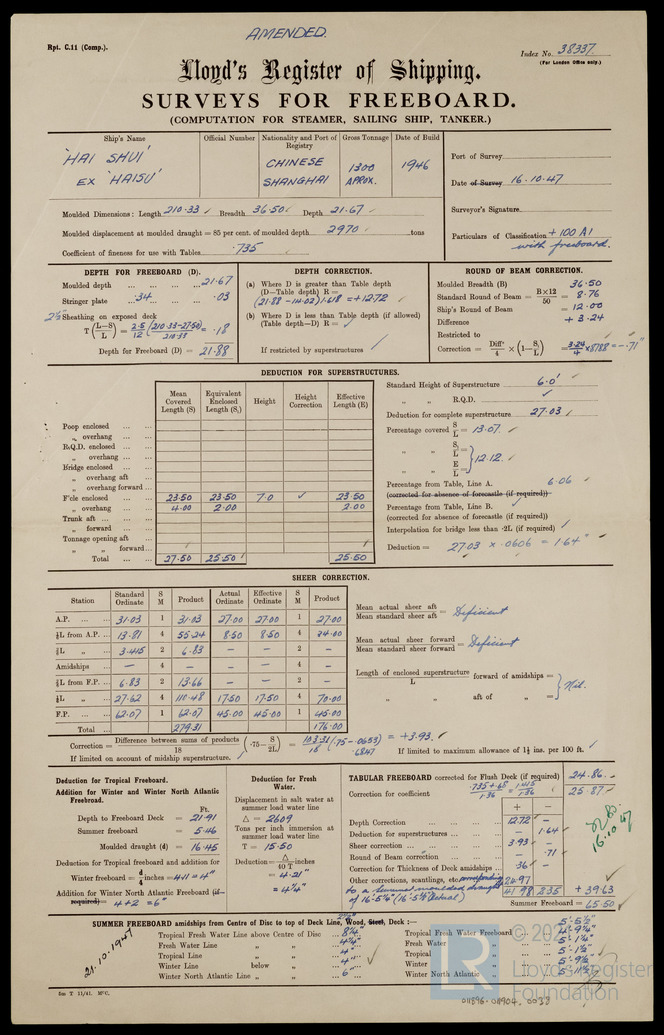 AMENDED.
Rpt. C.11 (Comp.).
Index No. 38337.
(For London Office only.)
Lloyd's Register of Shipping.
SURVEYS FOR FREEBOARD.
(COMPUTATION FOR STEAMER, SAILING SHIP, TANKER.)
Ship's Name Official Number Nationality and Port of Registry Gross Tonnage Date of Build
'HAI SHUI' EX 'HAISU' CHINESE SHANGHAI 1300 APROX. 1946
Port of Survey
Date of Survey 16.10.47
Surveyor's Signature
Particulars of Classification +100 A1 with freeboard.
Moulded Dimensions: Length 210.33 Breadth 36.50 Depth 21.67
Moulded displacement at moulded draught = 85 per cent. of moulded depth 2970 tons
Coefficient of fineness for use with Tables .735
DEPTH FOR FREEBOARD (D).
Moulded depth ... 21.67
Stringer plate .34 ... .03
2½" Sheathing on exposed deck
T (L-S/L) = 2.5/12 (210.33-27.50/210.33) = .18
Depth for Freeboard (D) = 21.88
DEPTH CORRECTION.
(a) Where D is greater than Table depth
(D-Table depth) R =
(21.88-14.02) 1.618 = +12.72
(b) Where D is less than Table depth (if allowed)
(Table depth-D) R =
If restricted by superstructures
ROUND OF BEAM CORRECTION.
Moulded Breadth (B) 36.50
Standard Round of Beam = B×12/50 = 8.76
Ship's Round of Beam = 12.00
Difference +3.24
Restricted to
Correction = Diff/4 × (1-S₁/L) = 3.24/4 × .8788 = -.71"
DEDUCTION FOR SUPERSTRUCTURES.
Mean Covered Length (S) Equivalent Enclosed Length (S₁) Height Height Correction Effective Length (E)
Poop enclosed
„ overhang
R.Q.D. enclosed
„ overhang
Bridge enclosed
„ overhang aft
„ overhang forward
F'cle enclosed 23.50 23.50 7.0 ✓ 23.50
„ overhang 4.00 2.00 2.00
Trunk aft
„ forward
Tonnage opening aft
„ „ forward
Total 27.50 25.50 25.50
Standard Height of Superstructure 6.0'
„ „ R.Q.D. ✓
Deduction for complete superstructure 27.03
Percentage covered S/L = 13.07
„ „ S₁/L =
„ „ E/L = } 12.12.
Percentage from Table, Line A. 6.06
(corrected for absence of forecastle (if required))
Percentage from Table, Line B.
(corrected for absence of forecastle (if required))
Interpolation for bridge less than .2L (if required)
Deduction = 27.03 × .0606 = 1.64"
SHEER CORRECTION.
Station Standard Ordinate S M Product Actual Ordinate Effective Ordinate S M Product
A.P. 31.03 1 31.03 27.00 27.00 1 27.00
⅙L from A.P. 13.81 4 55.24 8.50 8.50 4 34.00
⅓L „ 3.415 2 6.83 - - 2 -
Amidships - 4 - - - 4 -
⅓L from F.P. 6.83 2 13.66 - - 2 -
⅙L „ 27.62 4 110.48 17.50 17.50 4 70.00
F.P. 62.07 1 62.07 45.00 45.00 1 45.00
Total 279.31 176.00
Mean actual sheer aft / Mean standard sheer aft = Deficient
Mean actual sheer forward / Mean standard sheer forward = Deficient
Length of enclosed superstructure / L forward of amidships =
„ „ aft of „ = } Nil.
Correction = Difference between sums of products/18 (.75-S/2L) = 103.31/18 (.75-.0653) .6847 = +3.93.
If limited on account of midship superstructure.
If limited to maximum allowance of 1½ ins. per 100 ft.
Deduction for Tropical Freeboard.
Addition for Winter and Winter North Atlantic Freeboard.
Ft.
Depth to Freeboard Deck = 21.91
Summer freeboard = 5.46
Moulded draught (d) = 16.45
Deduction for Tropical freeboard and addition for Winter freeboard = d/4 inches = 4.11 = 4"
Addition for Winter North Atlantic Freeboard (if required) = 4+2 = 6"
Deduction for Fresh Water.
Displacement in salt water at summer load water line
Δ = 2609
Tons per inch immersion at summer load water line
T = 15.50
Deduction = Δ/40T inches
= 4.21"
= 4¼"
TABULAR FREEBOARD corrected for Flush Deck (if required) 24.86
Correction for coefficient .735+.68/1.36 = 1.415/1.36 25.87
+ -
Depth Correction 12.72 -
Deduction for superstructures - 1.64
Sheer correction 3.93 -
Round of Beam correction - .71
Correction for Thickness of Deck amidships .36 -
Other corrections, scantlings, etc. corresponding 24.97
to a summer moulded draught of 16'-5⅜" (16'-5¾" actual)
41.98 2.35 +39.63
Summer Freeboard = 65.50
16.10.47
SUMMER FREEBOARD amidships from Centre of Disc to top of Deck Line, Wood, Steel, Deck:-
Tropical Fresh Water Line above Centre of Disc 8¼"
Fresh Water Line „ „ 4¼"
Tropical Line „ „ 4"
Winter Line below „ 4"
Winter North Atlantic Line „ „ 6"
5'-5½"
Tropical Fresh Water Freeboard 4'-9¼"
Fresh Water „ 5'-1¼"
Tropical „ 5'-1½"
Winter „ 5'-9½"
Winter North Atlantic „ 5'-11½"
21.10.1947
LR
Lloyd's Register
Foundation
011896-011904-0033